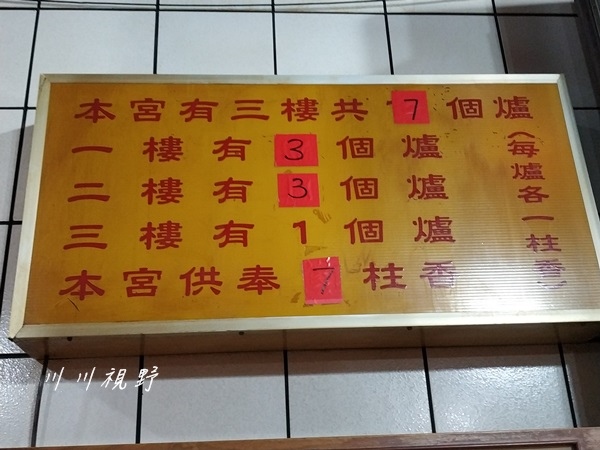 本宮有三樓共7個爐
一樓有3個爐
二樓有3個爐
三樓有1個爐
本宮供奉7柱香
（每爐各一柱香）
川川視野